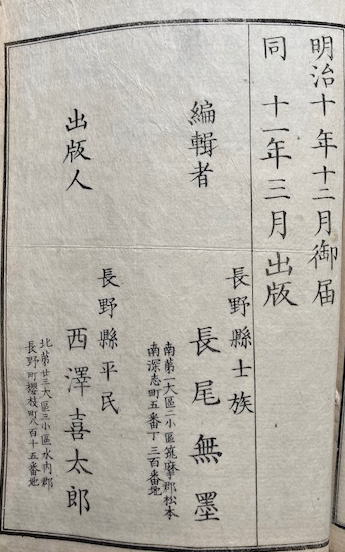 明治十年十二月御届
同 十一年三月出版
編輯者
長野縣士族
長尾無墨
南第二大區二小區筑摩郡松本
南深志町五番丁三百番地
出版人
長野縣平民
西澤喜太郎
北第廿三大區三小區水内郡
長野町櫻枝町八百十五番地